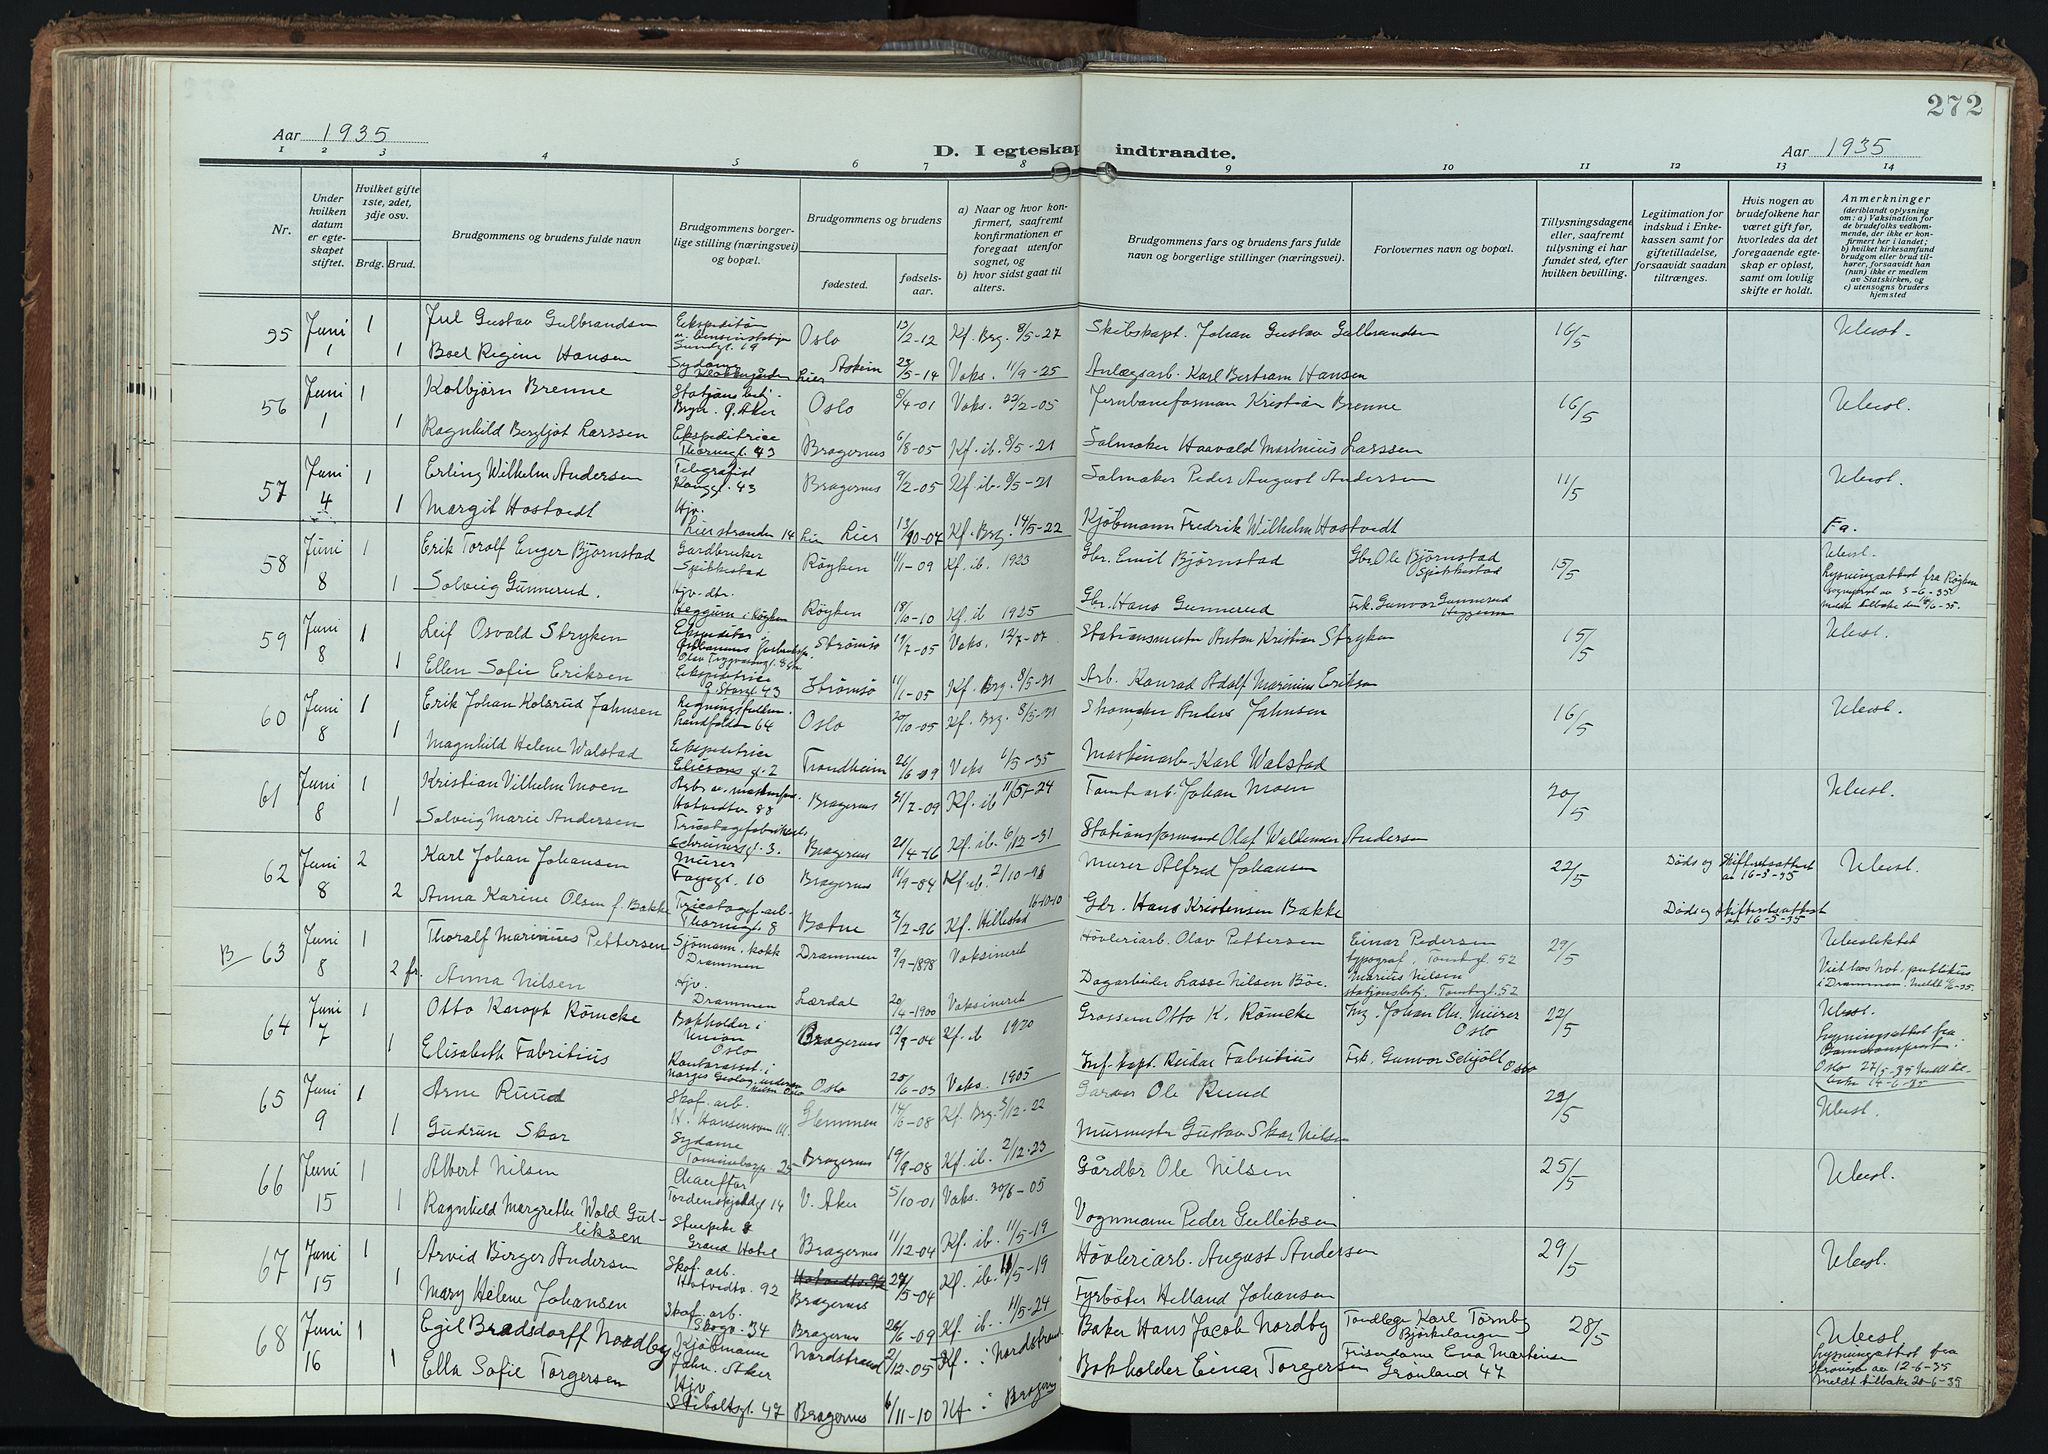 272
Aar 1935
D. I egteskap indtraadte.
Aar 1935
1 2 3 4 5 6 7 8 9 10 11 12 13 14
Nr.
Under hvilken datum er egteskapet stiftet.
Hvilket gifte 1ste, 2det, 3dje osv.
Brdg. Brud.
Brudgommens og brudens fulde navn
Brudgommens borgerlige stilling (næringsvei) og bopæl.
Brudgommens og brudens
fødested.
fødselsaar.
a) Naar og hvor konfirmert, saafremt konfirmationen er foregaat utenfor sognet, og
b) hvor sidst gaat til alters.
Brudgommens fars og brudens fars fulde navn og borgerlige stillinger (næringsvei).
Forlovernes navn og bopæl.
Tillysningsdagene eller, saafremt tillysning ei har fundet sted, efter hvilken bevilling.
Legitimation for indskud i Enkekassen samt for giftetilladelse, forsaavidt saadan tiltrænges.
Hvis nogen av brudefolkene har været gift før, hvorledes da det foregaaende egteskap er opløst, samt om lovlig skifte er holdt.
Anmerkninger
(deriblandt oplysning om: a) Vaksination for de brudefolks vedkommende, der ikke er konfirmert her i landet; b) hvilket kirkesamfund brudgom eller brud tilhører, forsaavidt han (hun) ikke er medlem av Statskirken, og c) utensogns bruders hjemsted
55 Juni 1 1 Jul Gustav Gulbrandsen Ekspeditør Oslo 13/2-12 Kf. Brg. 8/5-27 Skibskapt. Johan Gustav Gulbrandsen 16/5 Ubesl.
1 Boel Regine Hansen Sydame Lier Askim 23/5-14 Vaks. 11/9-25 Anlægsarb. Karl Bertram Hansen
56 Juni 1 1 Kolbjörn Brenne Oslo 8/4-01 Vaks. 22/2-05 Jernbaneforman Kristian Brenne 16/5 Ubesl.
1 Ragnhild Bergljot Larssen Ekspeditrice Thornegt. 43 Bragernes 6/8-05 Kf. ib. 8/5-21 Salmaker Haavald Marinius Larssen
57 Juni 4 1 Erling Wilhelm Andersen Telegrafist Kongsgt. 43 Bragernes 9/2-05 Kf. ib. 8/5-21 Salmaker Peder August Andersen 11/5 Ubesl.
1 Margit Hostvedt Hjv. Lierstranden 14 Lier Lier 13/10-04 Kf. Brg. 14/5-22 Kjöbmann Fredrik Wilhelm Hostvedt Fa.
58 Juni 8 1 Erik Torolf Enger Bjørnstad Gardbruker Spikkestad Røyken 11/1-09 Kf. ib. 1923 Gbr. Emil Bjørnstad Gbr. Ole Bjørnstad Spikkestad 15/5 Ubesl.
1 Solveig Gunnerud. Hjv. dtr. Heggum i Røyken Røyken 18/10-10 Kf. ib 1925 Gbr. Hans Gunnerud Frk. Gunvor Gunnerud Heggum Lysningsattest fra Røyken sogneprest av 3-6-35 meldt tilbake den 14/6-35.
59 Juni 8 1 Leif Osvald Stryken Ekspeditør Strømsø 19/7-05 Vaks. 12/7-07 Stationsmester Anton Kristian Stryken 15/5 Ubesl.
1 Ellen Sofie Eriksen Ekspeditrice Storgt. 43 Strømsø 11/1-05 Kf. Brg. 8/5-21 Arb. Konrad Adolf Marinius Eriksen
60 Juni 8 1 Erik Johan Kolsrud Jahnsen Landfalden 64 Oslo 20/10-05 Kf. Brg. 8/5-21 Skom. Anders Jahnsen 16/5 Ubesl.
1 Magnhild Helene Walstad Ekspeditrice Trondheim 26/6-09 Vaks 4/5-35 Maskinarb. Karl Walstad
61 Juni 8 1 Kristian Vilhelm Moen Hotvedtv. 88 Bragernes 31/7-09 Kf. ib 11/5-24 Tomtearb. Johan Moen 20/5 Ubesl.
1 Solveig Marie Andersen Schrivers gt. 3. Bragernes 21/4-16 Kf. ib. 6/12-31 Stationsformand Olaf Waldemar Andersen
62 Juni 8 2 Karl Johan Johansen Murer Fagergt. 10 Bragernes 11/9-84 Kf. ib. 2/10-98 Murer Alfred Johansen 22/5 Døds og skifteretsattest av 16-5-35 Ubesl.
2 Anna Karine Olsen f. Bakke Tricotagef. arb. Thornegt. 8 Botne 3/2-96 Kf. Hillestad 16-10-10 Gbr. Hans Kristensen Bakke Døds og skifteattest av 16-5-35
B 63 Juni 8 1 Thoralf Marinius Pettersen Sjømann, kokk Drammen Drammen 9/9-1898 Vaksineret Høvleriarb. Olav Pettersen Einar Pedersen typograf, Tomtegt. 52 29/5 Ubeslektet
2 fr. Anna Nilsen Hjv. Drammen Lærdal 20/4-1900 Vaksineret Dagarbeider Lasse Nilsen Böe. Marius Nilsen stasjonsbetj. Tomtegt. 52 Viet hos Not. publikus i Drammen. Meldt 11/6-35.
64 Juni 7 1 Otto Karoph Römcke Bokholder i Union Oslo Bragernes 12/9-04 Kf. ib 1920 Grosserer Otto K. Römcke Ing. Johan Chr. Mürer Oslo 22/5 Ubesl.
1 Elisabeth Fabritius Oslo 25/6-03 Vaks. 1905 Inf. kapt. Reidar Fabritius Frk. Gunvor Schjöll Oslo Lysningsattest fra Oslo 27/5-35 Meldt til 14-6-35
65 Juni 9 1 Arne Ruud Skof. arb. Glemmen 14/6-08 Kf. Brg. 3/12-22 Garver Ole Ruud 22/5 Ubesl.
1 Gudrun Skar Sydame Bragernes 19/9-08 Kf. ib. 2/12-23 Murmester Gustav Skar Nilsen
66 Juni 15 1 Albert Nilsen Chauffør Tordenskjoldgt 14 V. Aker 5/10-01 Vaks. 20/6-05 Gårdbr Ole Nilsen 25/5 Ubesl.
1 Ragnhild Margrethe Wold Gulliksen Stuepike Grand Hotel Bragernes 11/12-04 Kf. ib. 11/5-19 Vognmann Peder Gulliksen
67 Juni 15 1 Arvid Birger Andersen Skof. arb. Hotvedtv. 92 Bragernes 27/5-04 Kf. ib. 11/5-19 Høvleriarb. August Andersen 29/5 Ubesl.
1 Mary Helene Johansen Skof. arb. Skogv. 34 Bragernes 26/6-09 Kf. ib. 11/5-24 Fyrböter Helland Johansen
68 Juni 16 1 Egil Bradsdorff Nordby Kjøbmann Aker Nordstrand 2/12-05 Kf. i Nordstrand Baker Hans Jacob Nordby Tandlege Karl Törnby Bjørkelangen 28/5 Ubesl.
1 Ella Sofie Torgersen Hjv Stiboltsgt. 47 Bragernes 6/11-10 Kf. i Bragernes Bokholder Einar Torgersen Friserdame Eva Martinsen Grønland 47 Lysningsattest fra av 12-6-35 Meldt tilbake 20-6-35